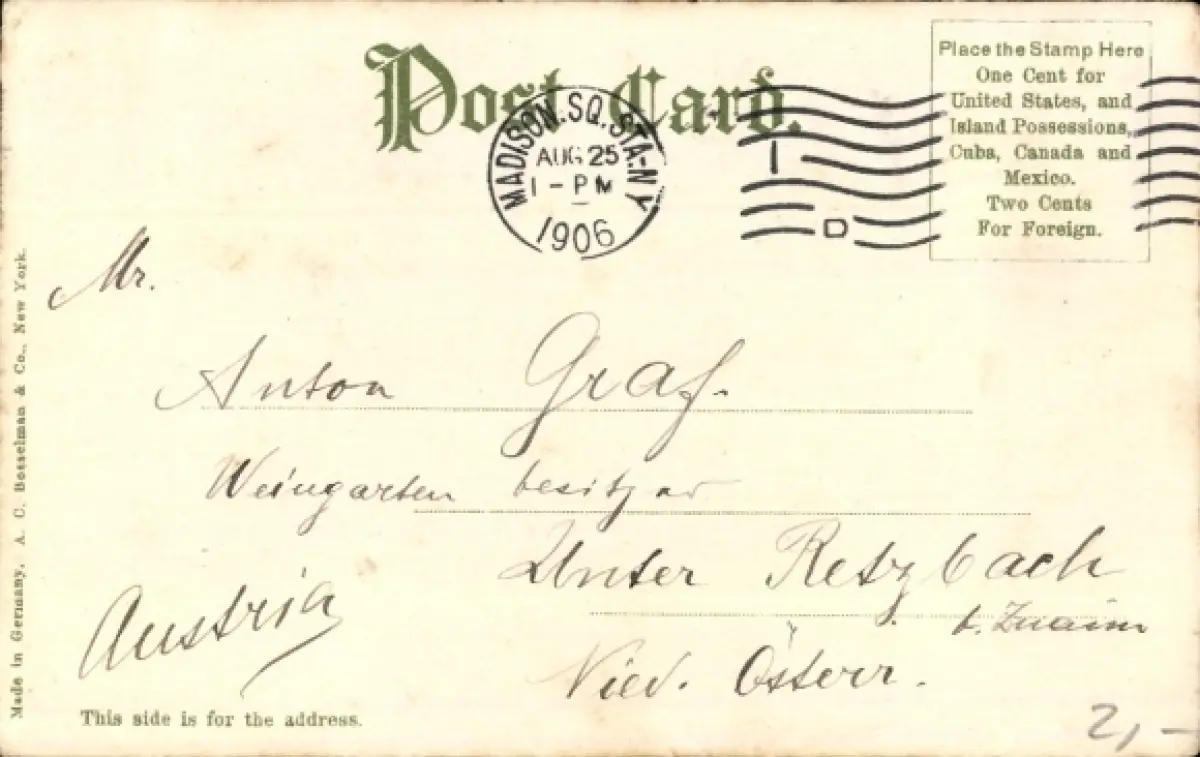 Post Card.
MADISON.SQ.STA-NY
AUG 25
1-PM
1906
D
Place the Stamp Here
One Cent for
United States, and
Island Possessions,
Cuba, Canada and
Mexico.
Two Cents
For Foreign.
Mr.
Anton Graf.
Weingarten besitzer
Unter Retzbach
b. Znaim
Austria
Nied. Österr.
This side is for the address.
2,-
Made in Germany, A. C. Bosselman & Co., New York.